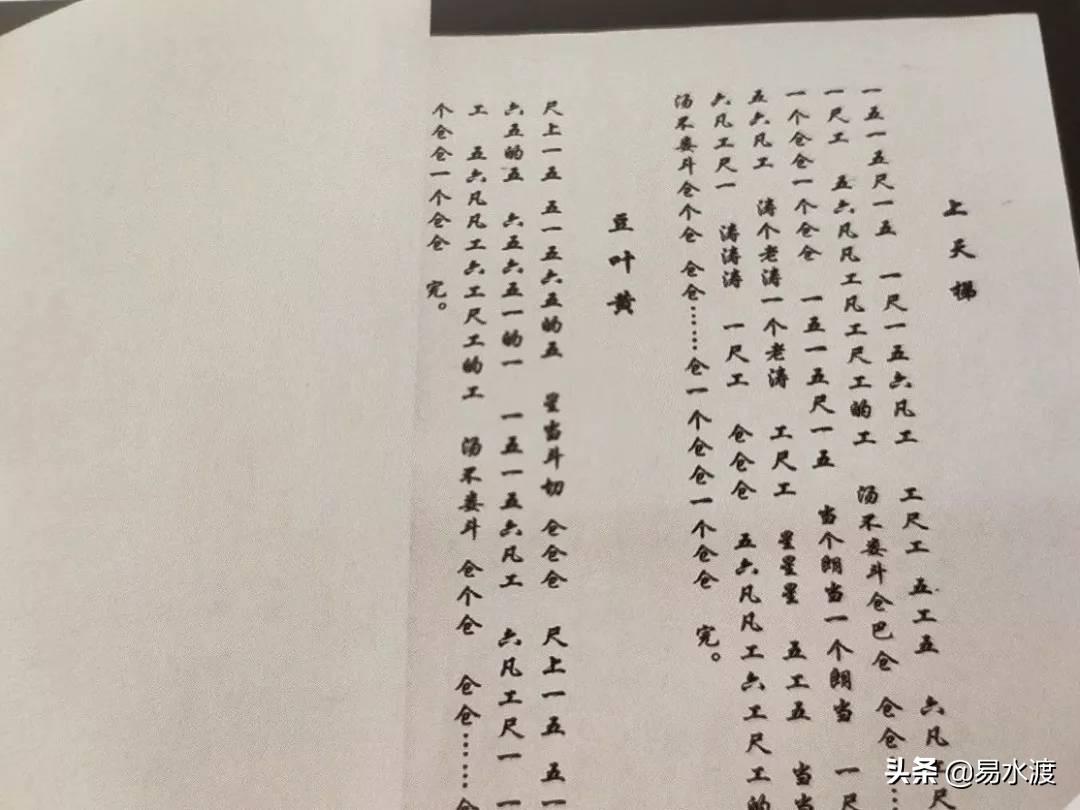 上天梯
一五一五尺一五 一尺一五六凡工 工尺工 五工五 六凡工尺
一尺工 五六凡凡工凡工尺工的工 汤不娄斗仓巴仓 仓仓……
一个仓仓一个仓仓 一五一五尺一五 当个朗当一个朗当 一尺
五六凡工 涛个老涛一个老涛 工尺工 星星星 五工五 当当
六凡工尺一 涛涛涛 一尺工 仓仓仓 五六凡凡工六工尺工的
汤不娄斗仓个仓 仓仓……仓一个仓仓一个仓仓 完。
豆叶黄
尺上一五 五一五六五的五 星当斗切 仓仓仓 尺上一五 五一
六五的五 六五六五一的一 一五一五六凡工 六凡工尺一 一
工 五六凡凡工六工尺工的工 汤不娄斗 仓个仓 仓仓……仓
个仓仓一个仓仓 完。
头条 @易水渡